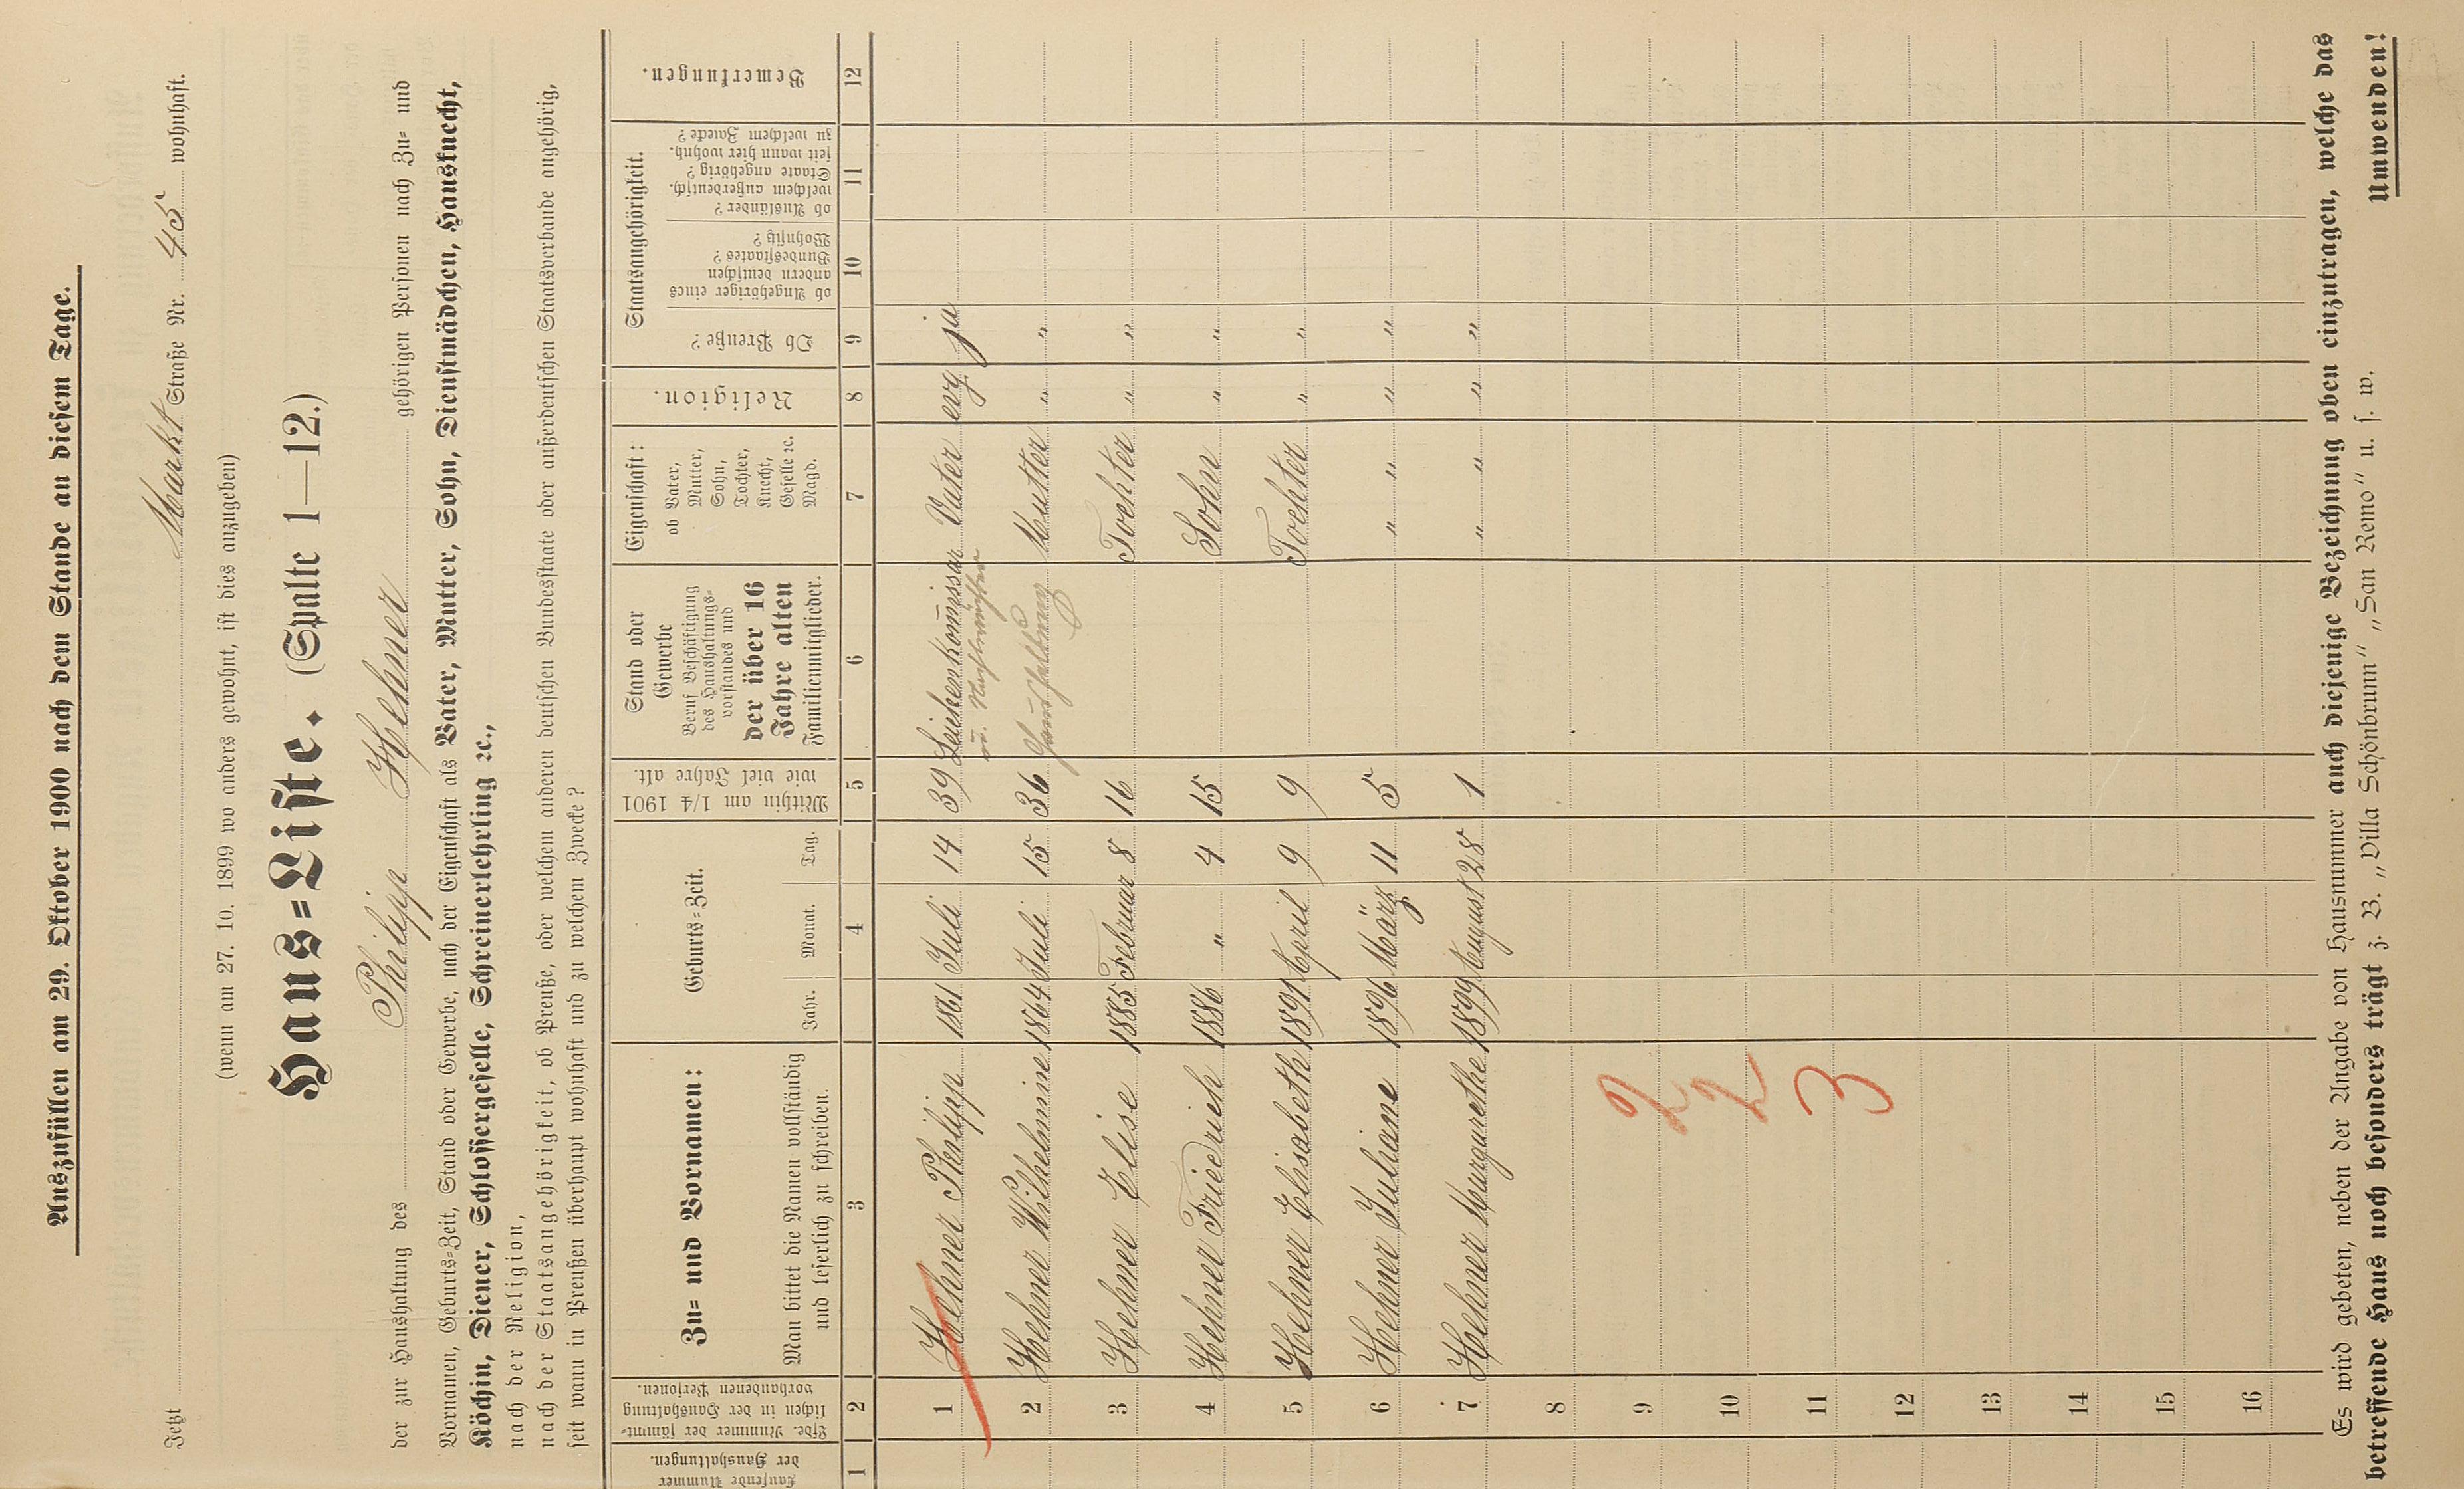 Auszufüllen am 29. Oktober 1900 nach dem Stande an diesem Tage.
Jetzt Markt Straße Nr. 45 wohnhaft.
(wenn am 27. 10. 1899 wo anders gewohnt, ist dies anzugeben)
Haus=Liste. (Spalte 1—12.)
der zur Haushaltung des Philipp Hehner gehörigen Personen nach Zu= und
Vornamen, Geburts=Zeit, Stand oder Gewerbe, nach der Eigenschaft als Vater, Mutter, Sohn, Dienstmädchen, Hausknecht,
Köchin, Diener, Schlossergeselle, Schreinerlehrling ꝛc.,
nach der Religion,
nach der Staatsangehörigkeit, ob Preuße, oder welchem anderen deutschen Bundesstaate oder außerdeutschen Staatsverbande angehörig,
seit wann in Preußen überhaupt wohnhaft und zu welchem Zwecke?
Laufende Nummer der Haushaltungen.
Lfde. Nummer der sämmt=lichen in der Haushaltung vorhandenen Personen.
Zu= und Vornamen:
Man bittet die Namen vollständig
und leserlich zu schreiben.
Geburts=Zeit.
Jahr. Monat. Tag.
Mithin am 1/4 1901
wie viel Jahre alt.
Stand oder
Gewerbe
Beruf Beschäftigung
des Haushaltungs=
vorstandes und
der über 16
Jahre alten
Familienmitglieder.
Eigenschaft:
ob Vater,
Mutter,
Sohn,
Tochter,
Knecht,
Geselle ꝛc.
Magd.
Religion.
Staatsangehörigkeit.
Ob Preuße?
ob Angehöriger eines
andern deutschen
Bundesstaates?
Wohnsitz?
ob Ausländer?
welchem außerdeutsch.
Staate angehörig?
seit wann hier wohnh.
zu welchem Zwecke?
Bemerkungen.
1 2 3 4 5 6 7 8 9 10 11 12
1 Hehner Philipp 1861 Juli 14 39 Leichenkom̄issar Vater evg ja
2 Hehner Wilhelmine 1864 Juli 15 36 Haushaltung Mutter " "
3 Hehner Elise 1885 Februar 8 16 Tochter " "
4 Hehner Friedrich 1886 " 4 15 Sohn " "
5 Hehner Elisabeth 1891 April 9 9 Tochter " "
6 Hehner Juliane 1896 März 11 5 " " " "
7 Hehner Margarethe 1899 August 28 1 " " " "
8
9
10
11
12
13
14
15
16
2
2
3
Es wird gebeten, neben der Angabe von Hausnummer auch diejenige Bezeichnung oben einzutragen, welche das
betreffende Haus noch besonders trägt z. B. „Villa Schönbrunn" „San Remo" u. s. w.
Umwenden!